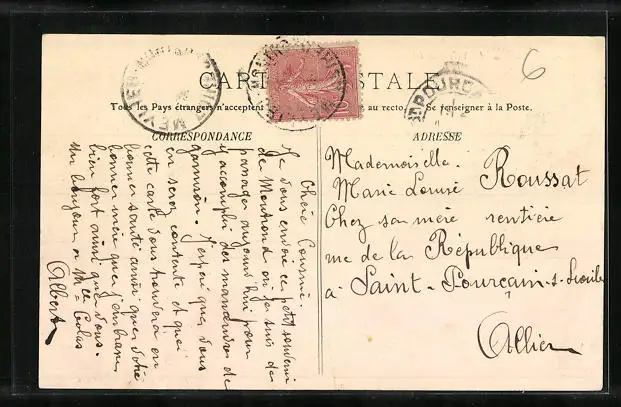 CARTE POSTALE
Tous les Pays étrangers n'acceptent au recto. Se renseigner à la Poste.
CORRESPONDANCE
ADRESSE
6
10
Chère Cousine.
Je vous envoie ce petit souvenir
de Montrond où je suis de
passage aujourd'hui pour
accomplir des manœuvres de
garnison. J'espère que vous
en serez contente et que
cette carte vous trouvera en
bonne santé ainsi que votre
bonne mère que j'embrasse
bien fort ainsi que vous.
Un bonjour a Mlle
Albert
Mademoiselle.
Marie Louise Roussat
Chez sa mère rentière
rue de la République
a Saint-Pourçain-s-Sioule
Allier